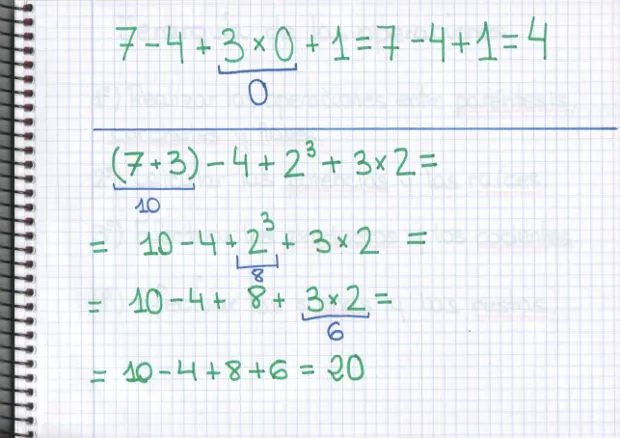 7 - 4 + 3 × 0 + 1 = 7 - 4 + 1 = 4
0
(7 + 3) - 4 + 2³ + 3 × 2 =
10
= 10 - 4 + 2³ + 3 × 2 =
8
= 10 - 4 + 8 + 3 × 2 =
6
= 10 - 4 + 8 + 6 = 20